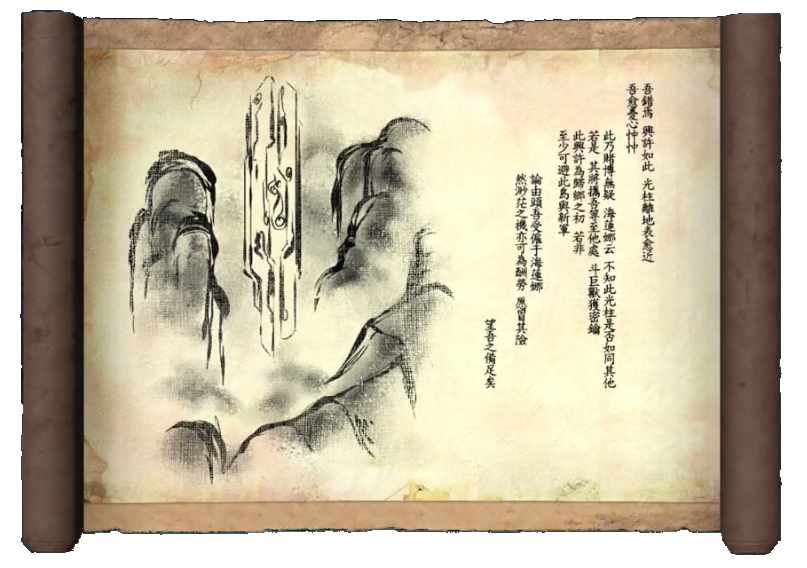 吾錯焉 興許如此 光柱離地表愈近
吾愈憂心忡忡
此乃賭博無疑 海蓮娜云 不知此光柱是否如同其他
若是 其將攜吾等至他處 斗巨獸獲密鑰
此興許為歸鄉之初 若非
至少可避此島與新軍
論由頭吾受僱于海蓮娜
然渺茫之機亦可為酬勞 愿冒其險
望吾之備足矣